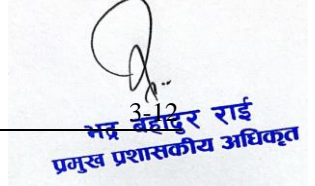 3-12
भद्र बहादुर राई
प्रमुख प्रशासकीय अधिकृत